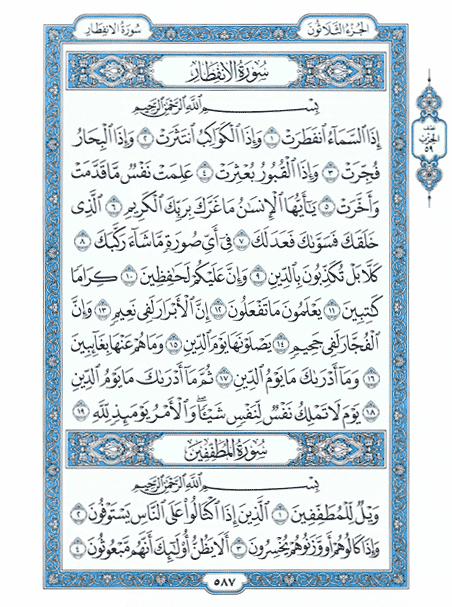 سُورَةُ الانفِطَارِ
الجُزْءُ الثَّلَاثُونَ
سُورَةُ الانفِطَارِ
بِسْمِ اللَّهِ الرَّحْمَٰنِ الرَّحِيمِ
إِذَا السَّمَاءُ انفَطَرَتْ ١ وَإِذَا الْكَوَاكِبُ انتَثَرَتْ ٢ وَإِذَا الْبِحَارُ
فُجِّرَتْ ٣ وَإِذَا الْقُبُورُ بُعْثِرَتْ ٤ عَلِمَتْ نَفْسٌ مَّا قَدَّمَتْ
وَأَخَّرَتْ ٥ يَٰأَيُّهَا الْإِنسَٰنُ مَا غَرَّكَ بِرَبِّكَ الْكَرِيمِ ٦ الَّذِي
خَلَقَكَ فَسَوَّىٰكَ فَعَدَلَكَ ٧ فِي أَيِّ صُورَةٍ مَّا شَاءَ رَكَّبَكَ ٨
كَلَّا بَلْ تُكَذِّبُونَ بِالدِّينِ ٩ وَإِنَّ عَلَيْكُمْ لَحَٰفِظِينَ ١٠ كِرَامًا
كَٰتِبِينَ ١١ يَعْلَمُونَ مَا تَفْعَلُونَ ١٢ إِنَّ الْأَبْرَارَ لَفِي نَعِيمٍ ١٣ وَإِنَّ
الْفُجَّارَ لَفِي جَحِيمٍ ١٤ يَصْلَوْنَهَا يَوْمَ الدِّينِ ١٥ وَمَا هُمْ عَنْهَا بِغَائِبِينَ
١٦ وَمَا أَدْرَىٰكَ مَا يَوْمُ الدِّينِ ١٧ ثُمَّ مَا أَدْرَىٰكَ مَا يَوْمُ الدِّينِ
١٨ يَوْمَ لَا تَمْلِكُ نَفْسٌ لِّنَفْسٍ شَيْئًا ۖ وَالْأَمْرُ يَوْمَئِذٍ لِّلَّهِ ١٩
سُورَةُ المُطَفِّفِينَ
بِسْمِ اللَّهِ الرَّحْمَٰنِ الرَّحِيمِ
وَيْلٌ لِّلْمُطَفِّفِينَ ١ الَّذِينَ إِذَا اكْتَالُوا عَلَى النَّاسِ يَسْتَوْفُونَ ٢
وَإِذَا كَالُوهُمْ أَو وَّزَنُوهُمْ يُخْسِرُونَ ٣ أَلَا يَظُنُّ أُولَٰئِكَ أَنَّهُم مَّبْعُوثُونَ ٤
٥٨٧
الحِزْب
٥٩